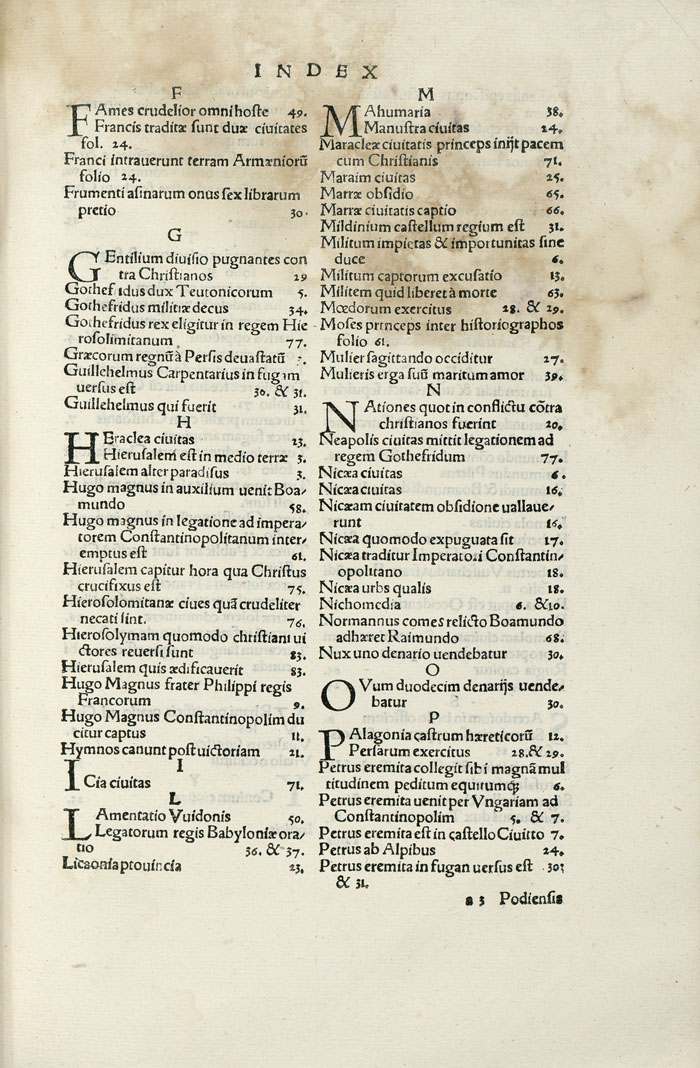 INDEX
F
FAmes crudelior omni hoste 49.
Francis traditæ sunt duæ ciuitates
fol. 24.
Franci intrauerunt terram Armæniorū
folio 24.
Frumenti asinarum onus sex librarum
pretio 30.
G
GEntilium diuisio pugnantes con
tra Christianos 29
Gothefridus dux Teutonicorum 5.
Gothefridus militiæ decus 34.
Gothefridus rex eligitur in regem Hie
rosolimitanum 77.
Græcorum regnū à Persis deuastatū
Guillehelmus Carpentarius in fugam
uersus est 30. & 31.
Guillehelmus qui fuerit 31.
H
HEraclea ciuitas 23.
Hierusalem est in medio terræ 3.
Hierusalem alter paradisus 3.
Hugo magnus in auxilium uenit Boa/
mundo 58.
Hugo magnus in legatione ad impera/
torem Constantinopolitanum inter/
emptus est 61.
Hierusalem capitur hora qua Christus
crucifixus est 75.
Hierosolomitanæ ciues quā crudeliter
necati sint. 76.
Hierosolymam quomodo christiani ui
ctores reuersi sunt 83.
Hierusalem quis ædificauerit 83.
Hugo Magnus frater Philippi regis
Francorum 9.
Hugo Magnus Constantinopolim du
citur captus 11.
Hymnos canunt post uictoriam 21.
I
ICia ciuitas 71.
L
LAmentatio Vuidonis 50.
Legatorum regis Babyloniæ ora/
tio 36. & 37.
Licaonia prouincia 23.
M
MAhumaria 38.
Manustra ciuitas 24.
Maracleæ ciuitatis princeps inijt pacem
cum Christianis 71.
Maraim ciuitas 25.
Marræ obsidio 65.
Marræ ciuitatis captio 66.
Mildinium castellum regium est 31.
Militum impietas & importunitas sine
duce 6.
Militum captorum excusatio 13.
Militem quid liberet à morte 63.
Mœdorum exercitus 28. & 29.
Moses princeps inter historiographos
folio 61.
Mulier sagittando occiditur 27.
Mulieris erga suū maritum amor 39.
N
NAtiones quot in conflictu cōtra
christianos fuerint 20.
Neapolis ciuitas mittit legationem ad
regem Gothefridum 77.
Nicæa ciuitas 6.
Nicæa ciuitas 16.
Nicæam ciuitatem obsidione uallaue/
runt 16.
Nicæa quomodo expuguata sit 17.
Nicæa traditur Imperatori Constantin/
opolitano 18.
Nicæa urbs qualis 18.
Nichomedia 6. &10.
Normannus comes relicto Boamundo
adhæret Raimundo 68.
Nux uno denario uendebatur 30.
O
OVum duodecim denarijs uende/
batur 30.
P
PAlagonia castrum hæreticorū 12.
Persarum exercitus 28.& 29.
Petrus eremita collegit sibi magnā mul
titudinem peditum equitumq; 6.
Petrus eremita uenit per Vngariam ad
Constantinopolim 5. & 7.
Petrus eremita est in castello Ciuitto 7.
Petrus ab Alpibus 24.
Petrus eremita in fugan uersus est 30;
& 31.
a 3 Podiensis